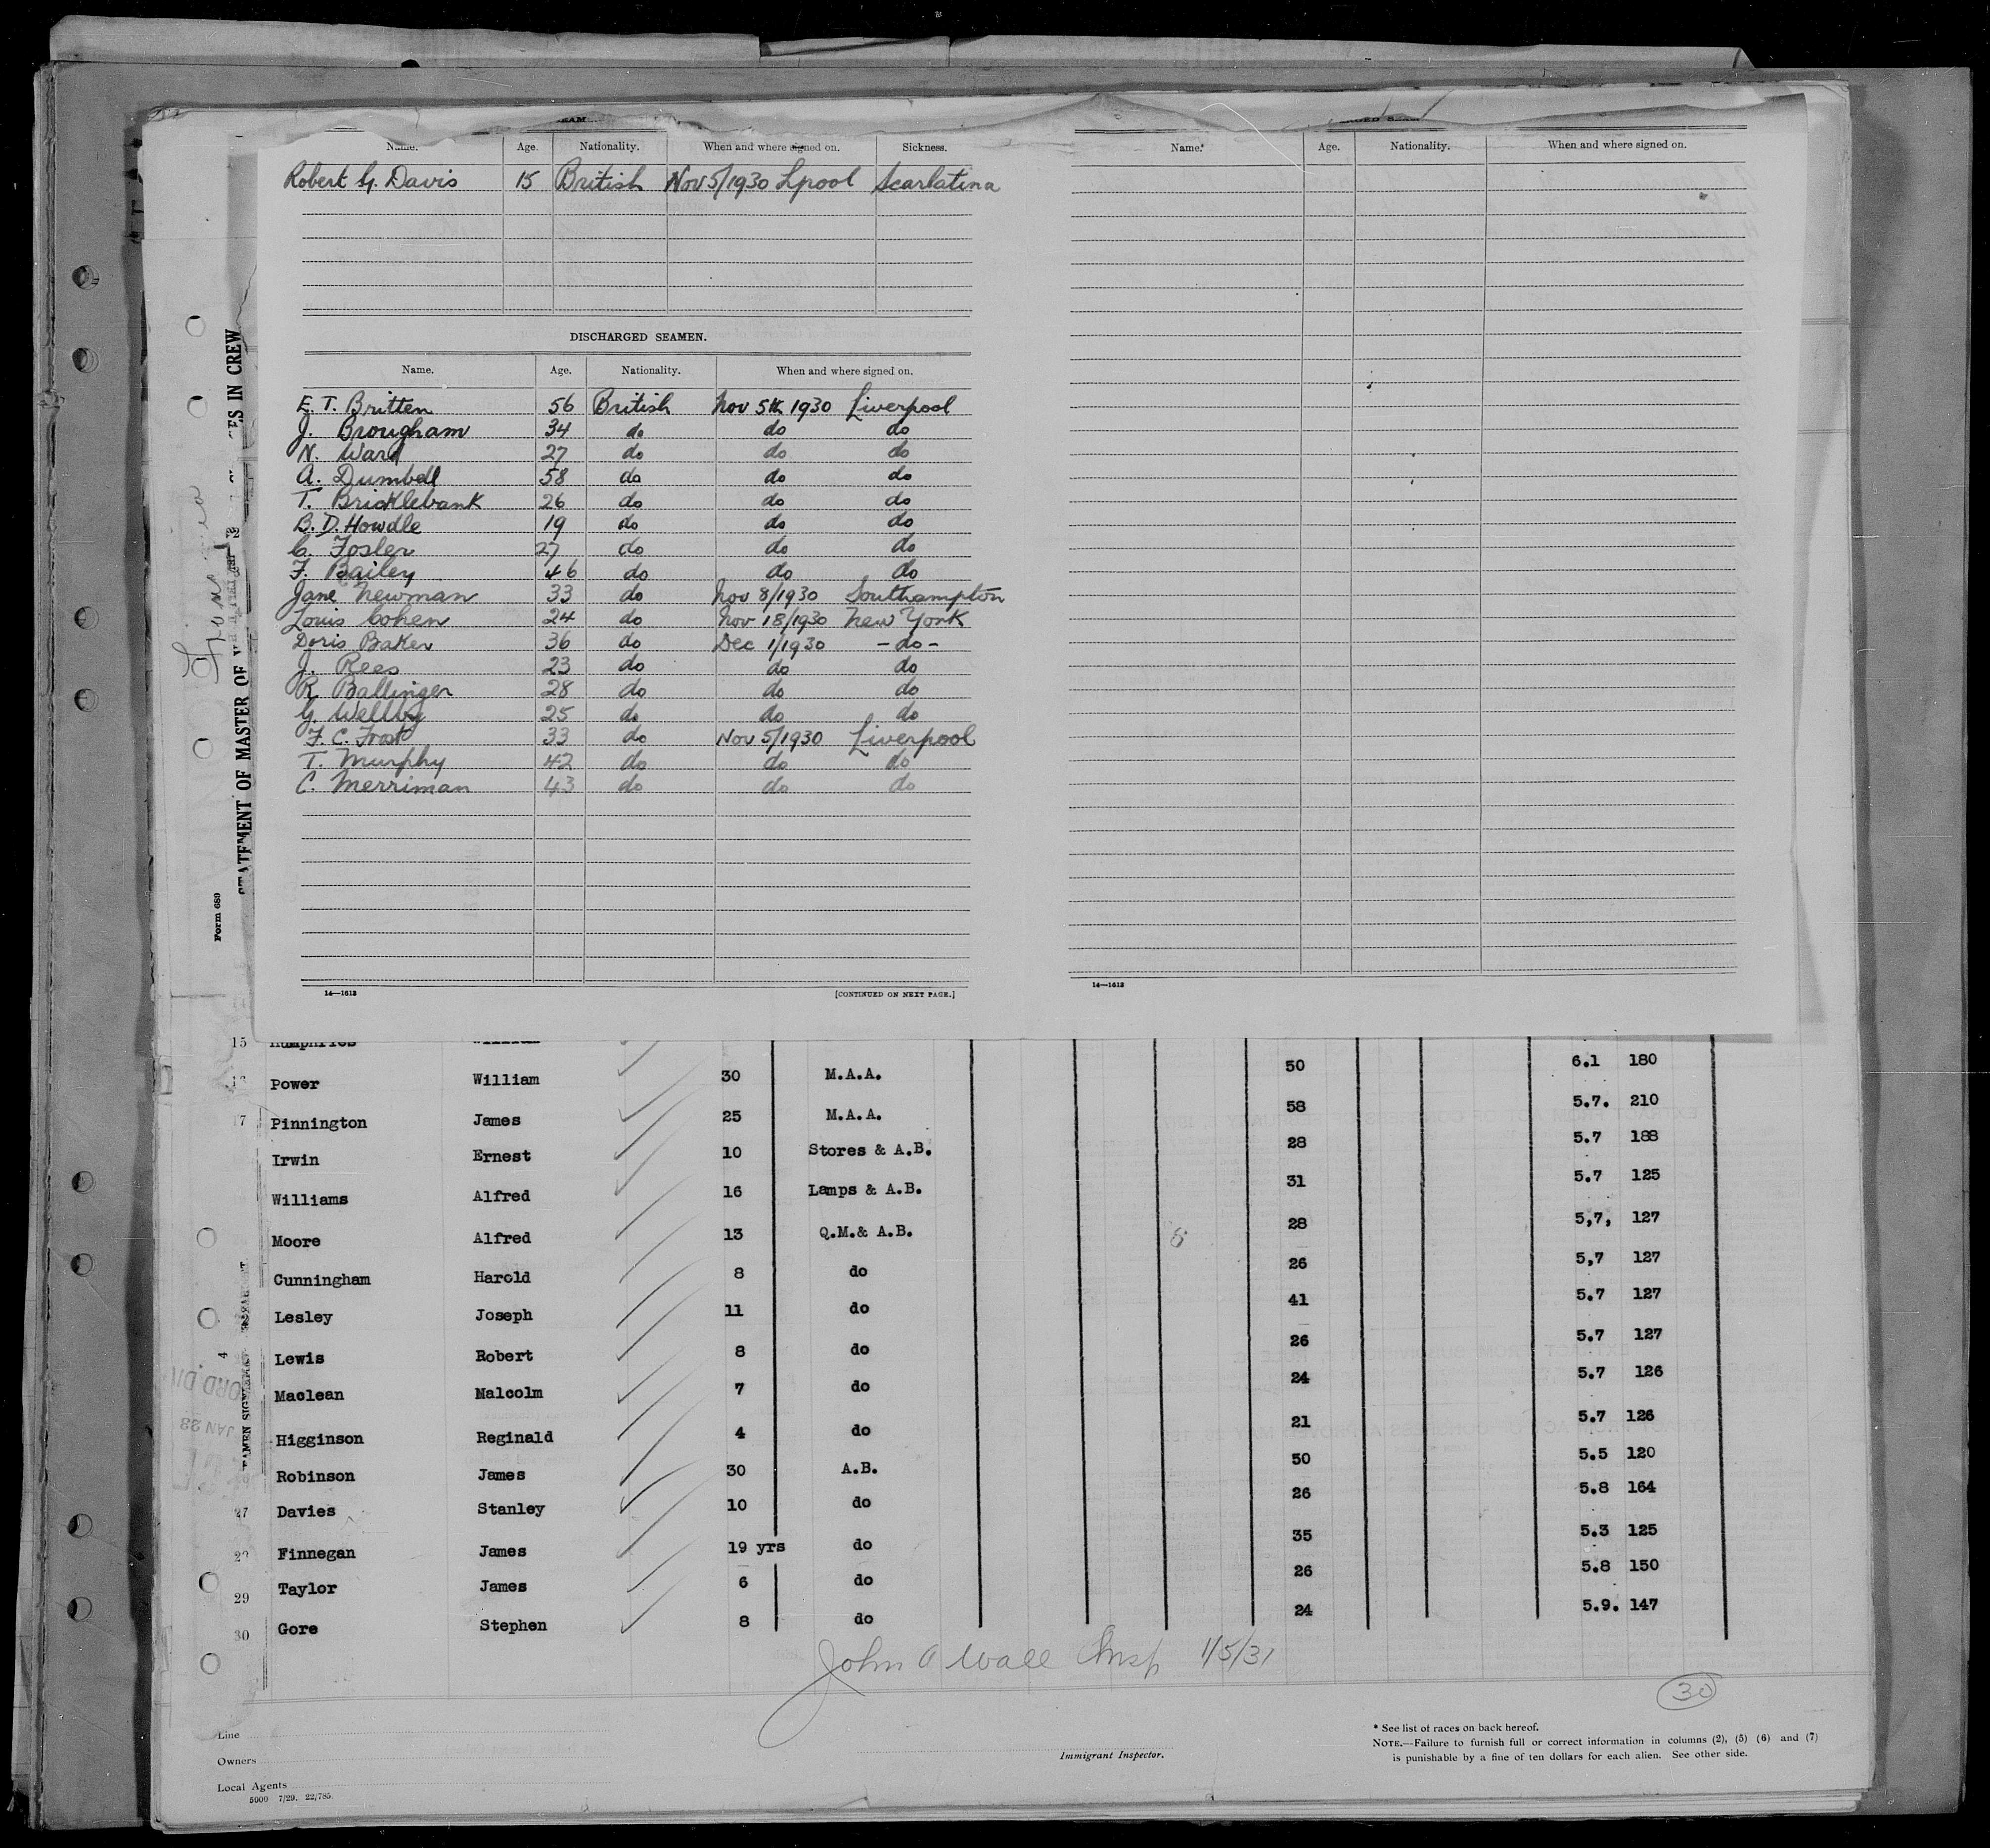 Name. Age. Nationality. When and where signed on. Sickness.
Robert G. Davis 15 British Nov 5/1930 Lpool Scarlatina
DISCHARGED SEAMEN.
Name. Age. Nationality. When and where signed on.
E. T. Britten 56 British Nov 5th 1930 Liverpool
J. Brougham 34 do do do
N. Ward 27 do do do
A. Dumbell 58 do do do
T. Bricklebank 26 do do do
B. D. Howdle 19 do do do
C. Foster 27 do do do
F. Bailey 46 do do do
Jane Newman 33 do Nov 8/1930 Southampton
Louis Cohen 24 do Nov 18/1930 New York
Doris Baker 36 do Dec 1/1930 - do -
J. Rees 23 do do do
R. Ballinger 28 do do do
G. Wellby 25 do do do
F. C. Frost 33 do Nov 5/1930 Liverpool
T. Murphy 42 do do do
C. Merriman 43 do do do
14—1613 [CONTINUED ON NEXT PAGE.]
Name. Age. Nationality. When and where signed on.
14—1613
STATEMENT OF MASTER OF
ES IN CREW
Form 689
15 Humphries William 50 6.1 180
Power William 30 M.A.A. 58 5.7. 210
7 Pinnington James 25 M.A.A. 28 5.7 188
Irwin Ernest 10 Stores & A.B. 31 5.7 125
Williams Alfred 16 Lamps & A.B. 28 5,7, 127
Moore Alfred 13 Q.M.& A.B. 26 5,7 127
Cunningham Harold 8 do 41 5.7 127
Lesley Joseph 11 do 26 5.7 127
Lewis Robert 8 do 24 5.7 126
Maclean Malcolm 7 do 21 5.7 126
Higginson Reginald 4 do 50 5.5 120
Robinson James 30 A.B. 26 5.8 164
27 Davies Stanley 10 do 35 5.3 125
Finnegan James 19 yrs do 26 5.8 150
29 Taylor James 6 do 24 5.9. 147
30 Gore Stephen 8 do
John A Wall Insp 1/5/31
30
Line
Owners
Local Agents
5000 7/29. 22/785.
Immigrant Inspector.
* See list of races on back hereof.
NOTE.—Failure to furnish full or correct information in columns (2), (5) (6) and (7)
is punishable by a fine of ten dollars for each alien. See other side.